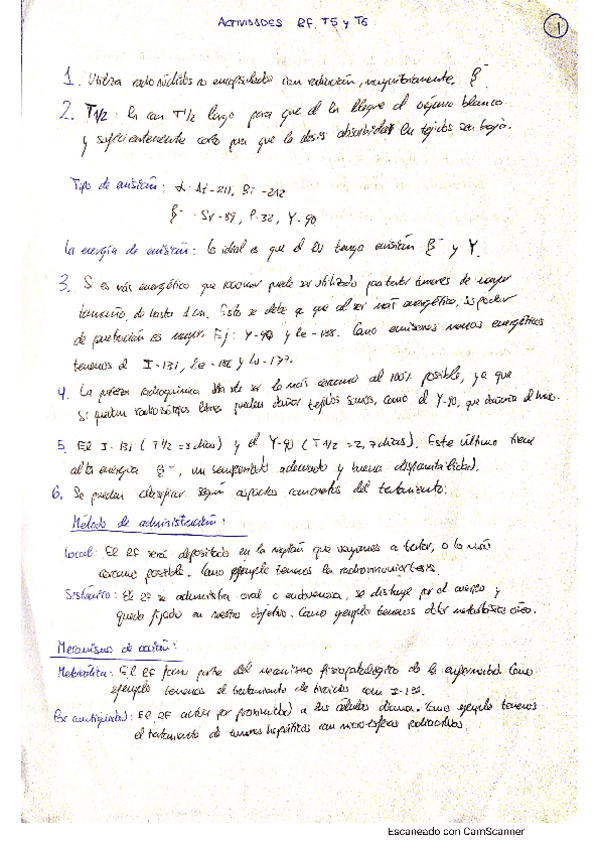 ACTIVIDADES RF. T5 y T6
1
1. Utiliza radionúclidos no encapsulados con radiación, mayoritariamente, β⁻
2. T1/2: Ha con T1/2 largo para que el llegue al órgano blanco
y suficientemente corto para que la dosis absorbida en tejidos sea baja.
Tipo de emisión: α: At-211, Bi-212
β⁻: Sr-89, P-32, Y-90
La energía de emisión: lo ideal es que el tenga emisión β⁻ y γ.
3. Si es más energético que puede ser utilizado para tratar tumores de mayor
tamaño, de hasta 1 cm. Esto se debe a que al ser más energético, su poder
de penetración es mayor. Ej: Y-90 y Re-188. Como emisores menos energéticos
tenemos el I-131, Re-186 y Lu-177.
4. La pureza radioquímica ha de ser lo más cercano al 100% posible, ya que
si quedan radioisótopos libres pueden dañar tejidos sanos, como el Y-90, que dañaría el hueso.
5. El I-131 (T1/2 = 8 días) y el Y-90 (T1/2 = 2,7 días). Este último tiene
alta energía β⁻, un adecuado y buena disponibilidad.
6. Se pueden clasificar según aspectos concretos del tratamiento:
Método de administración:
Local: El RF será depositado en la región que vayamos a tratar, o lo más
cercano posible. Como ejemplo tenemos la
Sistémico: El RF se administra oral o endovenosa, se distuye por el cuerpo y
queda fijado en nuestro objetivo. Como ejemplo tenemos dolor metastásico óseo.
Mecanismo de acción:
Metabólica: El RF forma parte del mecanismo fisiopatológico de la enfermedad. Como
ejemplo tenemos el tratamiento de tiroides con I-131.
Por contigüidad: El RF actúa por proximidad a las células diana. Como ejemplo tenemos
el tratamiento de tumores hepáticos con microesferas radiactivas.
Escaneado con CamScanner